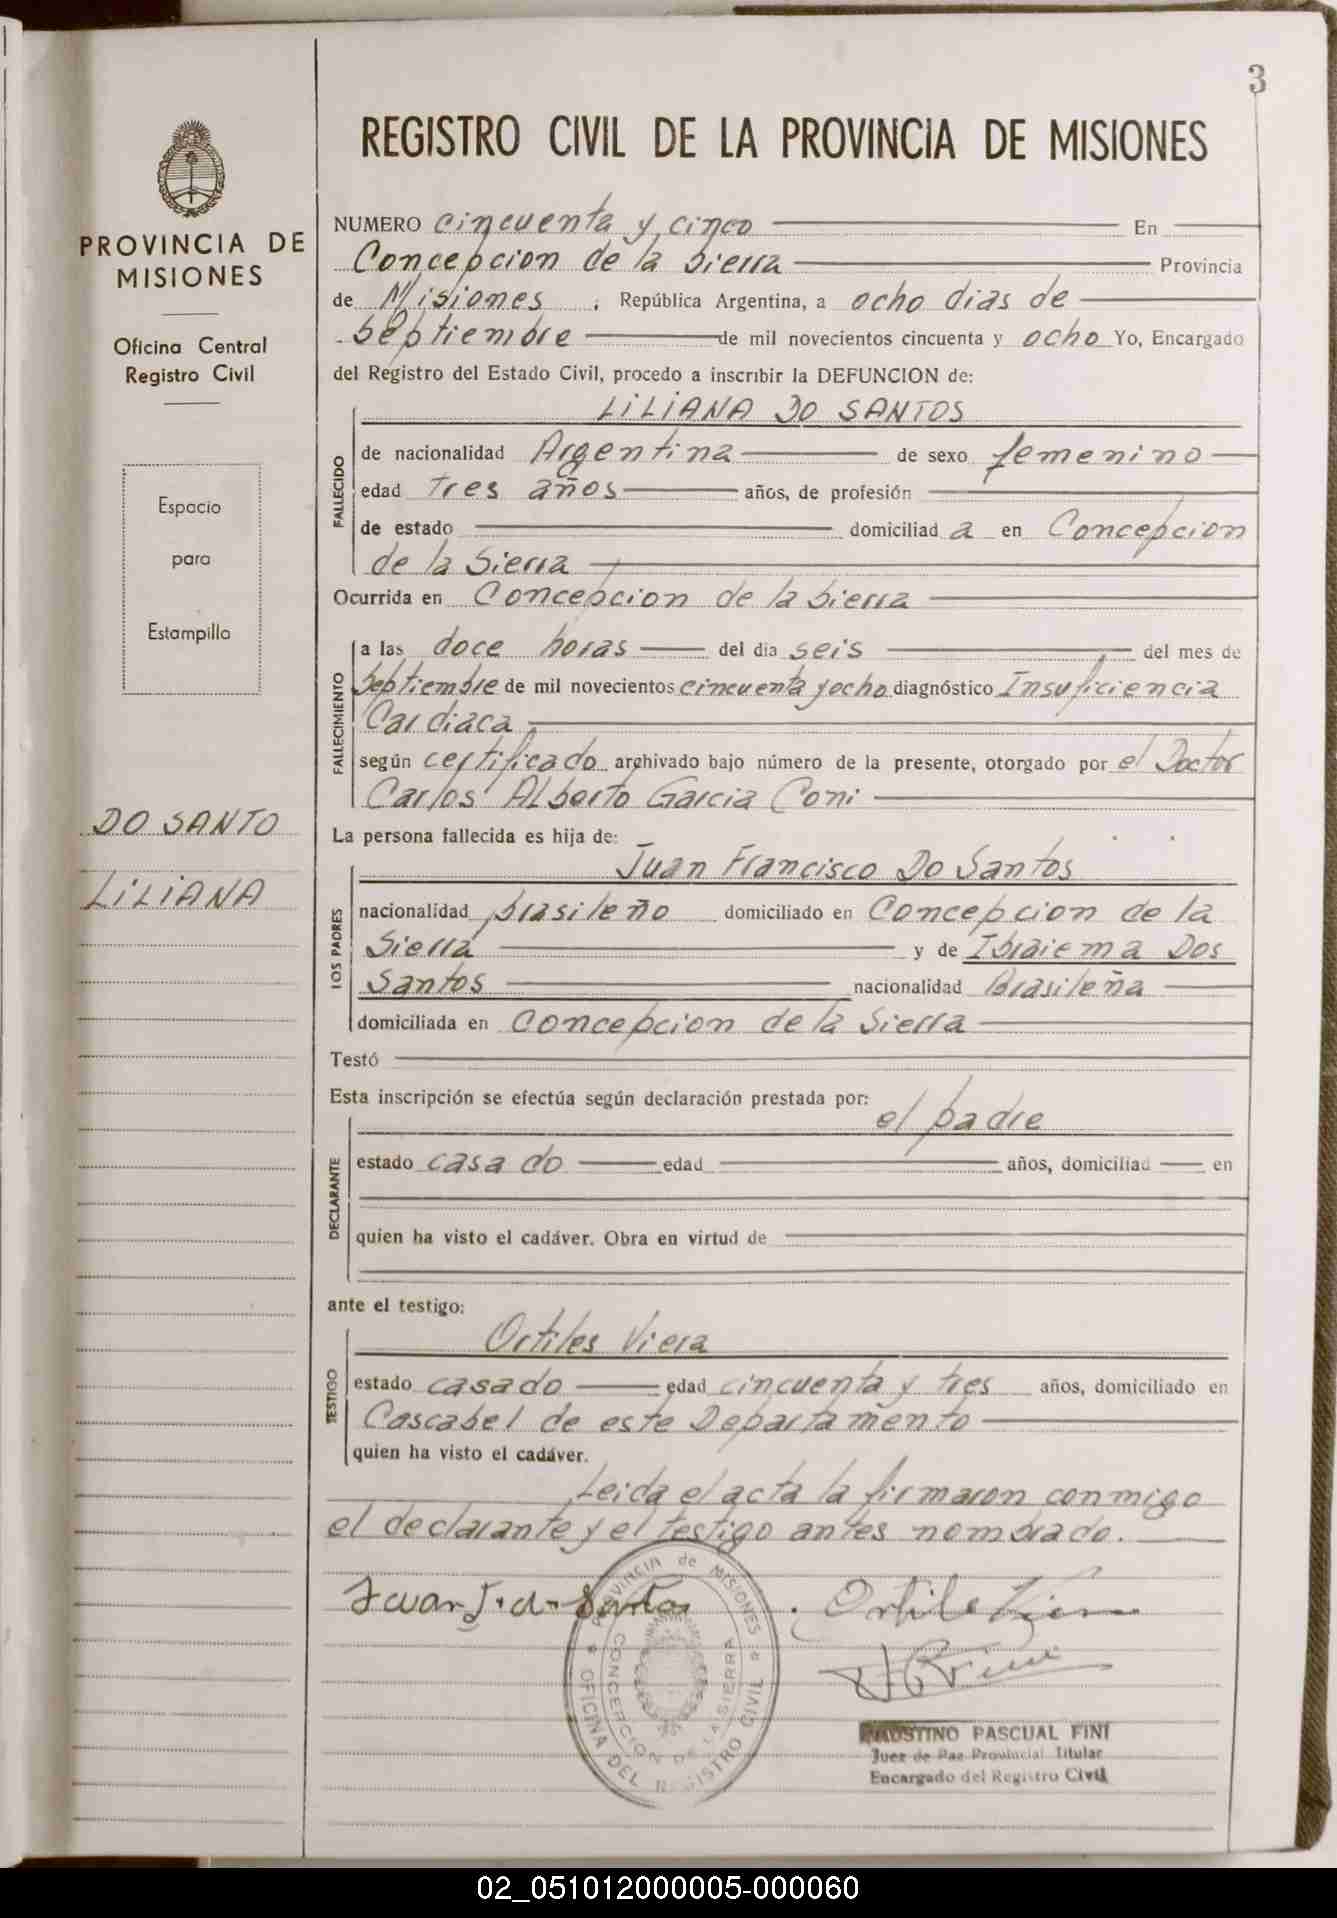 3
REGISTRO CIVIL DE LA PROVINCIA DE MISIONES
PROVINCIA DE
MISIONES
Oficina Central
Registro Civil
Espacio
para
Estampilla
DO SANTO
LILIANA
NUMERO cincuenta y cinco En
Concepcion de la Sierra Provincia
de Misiones, República Argentina, a ocho dias de
Septiembre de mil novecientos cincuenta y ocho Yo, Encargado
del Registro del Estado Civil, procedo a inscribir la DEFUNCION de:
LILIANA DO SANTOS
FALLECIDO
de nacionalidad Argentina de sexo femenino
edad tres años años, de profesión
de estado domiciliad a en Concepcion
de la Sierra
Ocurrida en Concepcion de la Sierra
FALLECIMIENTO
a las doce horas del dia seis del mes de
Septiembre de mil novecientos cincuenta y ocho diagnóstico Insuficiencia
Cardiaca
según certificado archivado bajo número de la presente, otorgado por el Doctor
Carlos Alberto Garcia Coni
La persona fallecida es hija de:
Juan Francisco Do Santos
LOS PADRES
nacionalidad brasileño domiciliado en Concepcion de la
Sierra y de Ibraiema Dos
Santos nacionalidad Brasileña
domiciliada en Concepcion de la Sierra
Testó
Esta inscripción se efectúa según declaración prestada por:
el padre
DECLARANTE
estado casado edad años, domiciliad en
quien ha visto el cadáver. Obra en virtud de
ante el testigo:
Ortiles Viera
TESTIGO
estado casado edad cincuenta y tres años, domiciliado en
Cascabel de este Departamento
quien ha visto el cadáver.
Leida el acta la firmaron conmigo
el declarante y el testigo antes nombrado.
PROVINCIA de MISIONES
OFICINA DEL REGISTRO CIVIL
CONCEPCION DE LA SIERRA
FAUSTINO PASCUAL FINI
Juez de Paz Provincial Titular
Encargado del Registro Civil
02_051012000005-000060